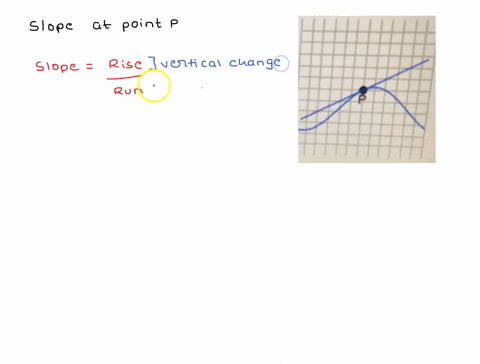 Slope at point P
Slope = Rise ] vertical change
Run
P